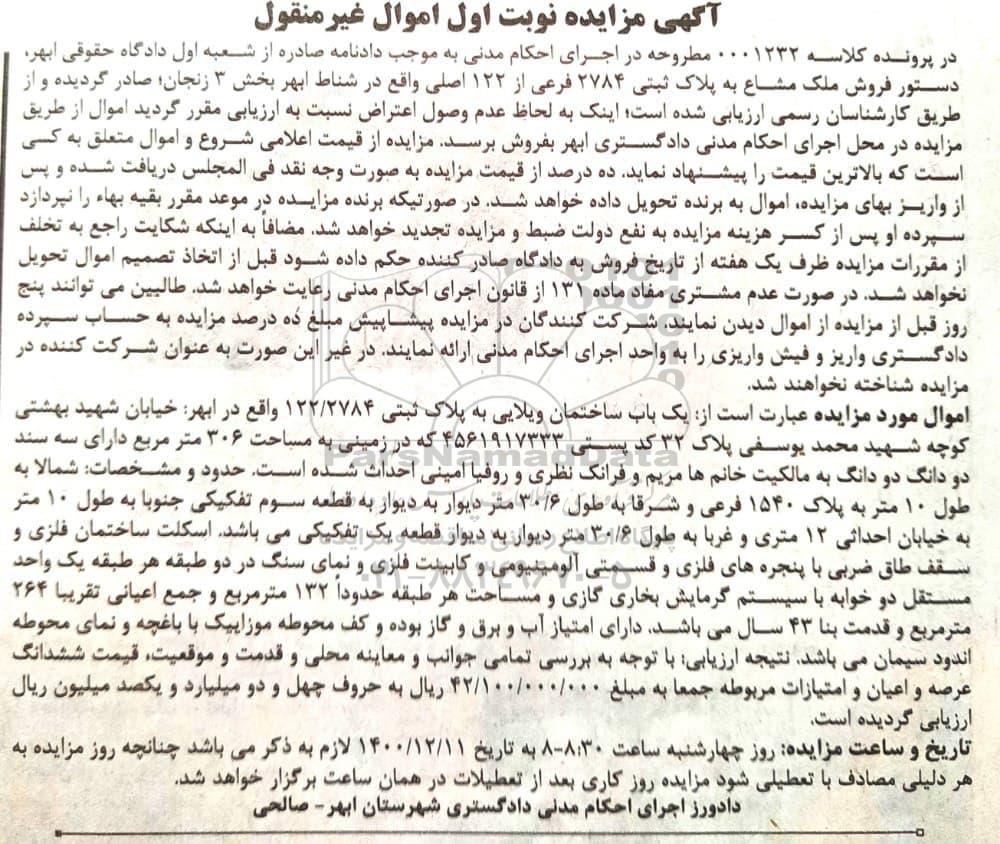 آگهی مزایده نوبت اول اموال غیرمنقول
در پرونده کلاسه ۰۰۰۱۲۳۲ مطروحه در اجرای احکام مدنی به موجب دادنامه صادره از شعبه اول دادگاه حقوقی ابهر،
دستور فروش ملک مشاع به پلاک ثبتی ۲۷۸۴ فرعی از ۱۲۲ اصلی واقع در شناط ابهر بخش ۳ زنجان؛ صادر گردیده و از
طریق کارشناسان رسمی ارزیابی شده است؛ اینک به لحاظ عدم وصول اعتراض نسبت به ارزیابی مقرر گردید اموال از طریق
مزایده در محل اجرای احکام مدنی دادگستری ابهر بفروش برسد. مزایده از قیمت اعلامی شروع و اموال متعلق به کسی
است که بالاترین قیمت را پیشنهاد نماید. ده درصد از قیمت مزایده به صورت وجه نقد فی المجلس دریافت شده و پس
از واریز بهای مزایده، اموال به برنده تحویل داده خواهد شد. در صورتیکه برنده مزایده در موعد مقرر بقیه بهاء را نپردازد
سپرده او پس از کسر هزینه مزایده به نفع دولت ضبط و مزایده تجدید خواهد شد. مضافاً به اینکه شکایت راجع به تخلف
از مقررات مزایده ظرف یک هفته از تاریخ فروش به دادگاه صادر کننده حکم داده شود قبل از اتخاذ تصمیم اموال تحویل
نخواهد شد. در صورت عدم مشتری مفاد ماده ۱۳۱ از قانون اجرای احکام مدنی رعایت خواهد شد. طالبین می توانند پنج
روز قبل از مزایده از اموال دیدن نمایند. شرکت کنندگان در مزایده پیشاپیش مبلغ ده درصد مزایده به حساب سپرده
دادگستری واریز و فیش واریزی را به واحد اجرای احکام مدنی ارائه نمایند. در غیر این صورت به عنوان شرکت کننده در
مزایده شناخته نخواهند شد.
اموال مورد مزایده عبارت است از: یک باب ساختمان ویلایی به پلاک ثبتی ۱۲۲/۲۷۸۴ واقع در ابهر: خیابان شهید بهشتی
کوچه شهید محمد یوسفی پلاک ۳۲ کد پستی ۴۵۶۱۹۱۷۳۳۳ که در زمینی به مساحت ۳۰۶ متر مربع دارای سه سند
دو دانگ دو دانگ به مالکیت خانم ها مریم و فرانک نظری و روفیا امینی احداث شده است. حدود و مشخصات: شمالا به
طول ۱۰ متر به پلاک ۱۵۴۰ فرعی و شرقا به طول ۳۰/۶ متر دیوار به دیوار به قطعه سوم تفکیکی جنوبا به طول ۱۰ متر
به خیابان احداثی ۱۲ متری و غربا به طول ۳۰/۶ متر دیوار به دیوار قطعه یک تفکیکی می باشد. اسکلت ساختمان فلزی و
سقف طاق ضربی با پنجره های فلزی و قسمتی آلومینیومی و کابینت فلزی و نمای سنگ در دو طبقه هر طبقه یک واحد
مستقل دو خوابه با سیستم گرمایش بخاری گازی و مساحت هر طبقه حدوداً ۱۳۲ مترمربع و جمع اعیانی تقریبا ۲۶۴
مترمربع و قدمت بنا ۴۳ سال می باشد. دارای امتیاز آب و برق و گاز بوده و کف محوطه موزاییک با باغچه و نمای محوطه
اندود سیمان می باشد. نتیجه ارزیابی: با توجه به بررسی تمامی جوانب و معاینه محلی و قدمت و موقعیت، قیمت ششدانگ
عرصه و اعیان و امتیازات مربوطه جمعا به مبلغ ۴۲/۱۰۰/۰۰۰/۰۰۰ ریال به حروف چهل و دو میلیارد و یکصد میلیون ریال
ارزیابی گردیده است.
تاریخ و ساعت مزایده: روز چهارشنبه ساعت ۸:۳۰-۸ به تاریخ ۱۴۰۰/۱۲/۱۱ لازم به ذکر می باشد چنانچه روز مزایده به
هر دلیلی مصادف با تعطیلی شود مزایده روز کاری بعد از تعطیلات در همان ساعت برگزار خواهد شد.
دادورز اجرای احکام مدنی دادگستری شهرستان ابهر- صالحی
ParsNamadData
۰۲۱-۸۸۳۴۹۶۷۰-۵